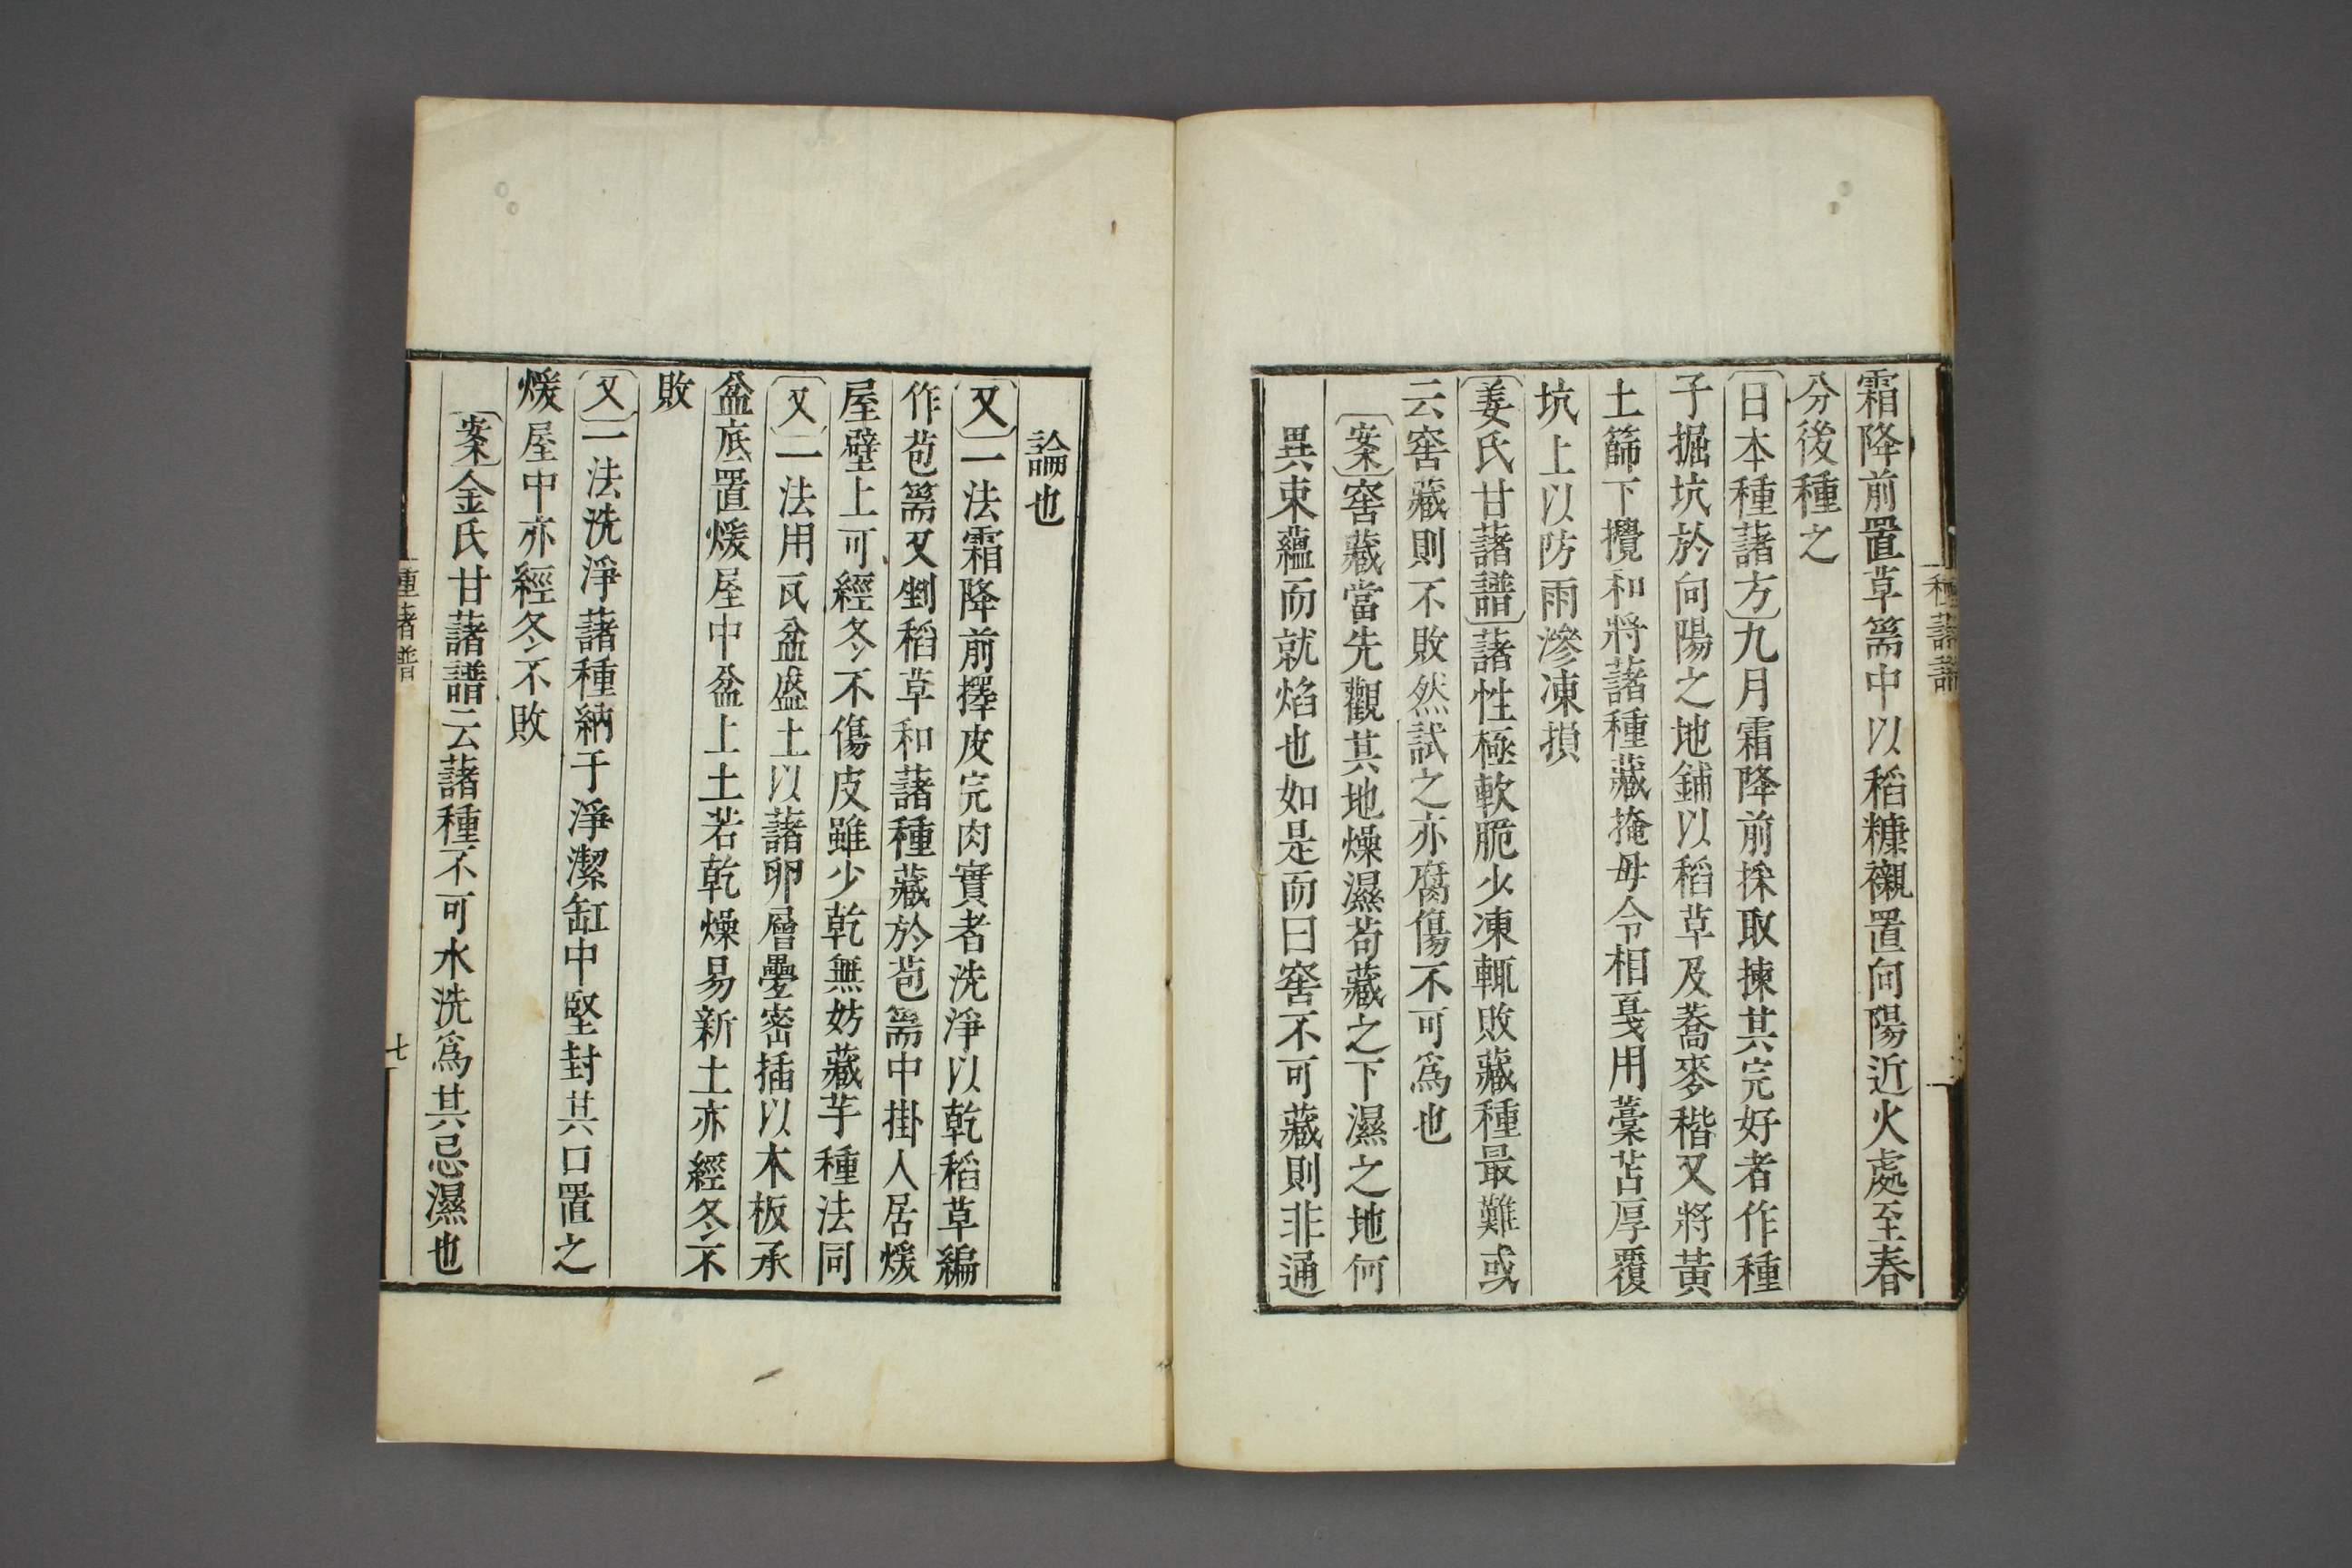 種藷譜
霜降前置草篅中以稻糠襯置向陽近火處至春
分後種之
〔日本種藷方〕九月霜降前採取揀其完好者作種
子掘坑於向陽之地鋪以稻草及蕎麥稭又將黃
土篩下攪和將藷種藏掩毋令相戛用藁苫厚覆
坑上以防雨滲凍損
〔姜氏甘藷譜〕藷性極軟脆少凍輒敗藏種最難或
云窖藏則不敗然試之亦腐傷不可爲也
〔案〕窖藏當先觀其地燥濕苟藏之下濕之地何
異束蘊而就焰也如是而曰窖不可藏則非通
論也
〔又〕一法霜降前擇皮完肉實者洗淨以乾稻草編
作苞篅又剉稻草和藷種藏於苞篅中掛人居煖
屋壁上可經冬不傷皮雖少乾無妨藏芋種法同
〔又〕一法用瓦盆盛土以藷卵層疊密插以木板承
盆底置煖屋中盆上土若乾燥易新土亦經冬不
敗
〔又〕一法洗淨藷種納于淨潔缸中堅封其口置之
煖屋中亦經冬不敗
〔案〕金氏甘藷譜云藷種不可水洗爲其忌濕也
種藷譜
七